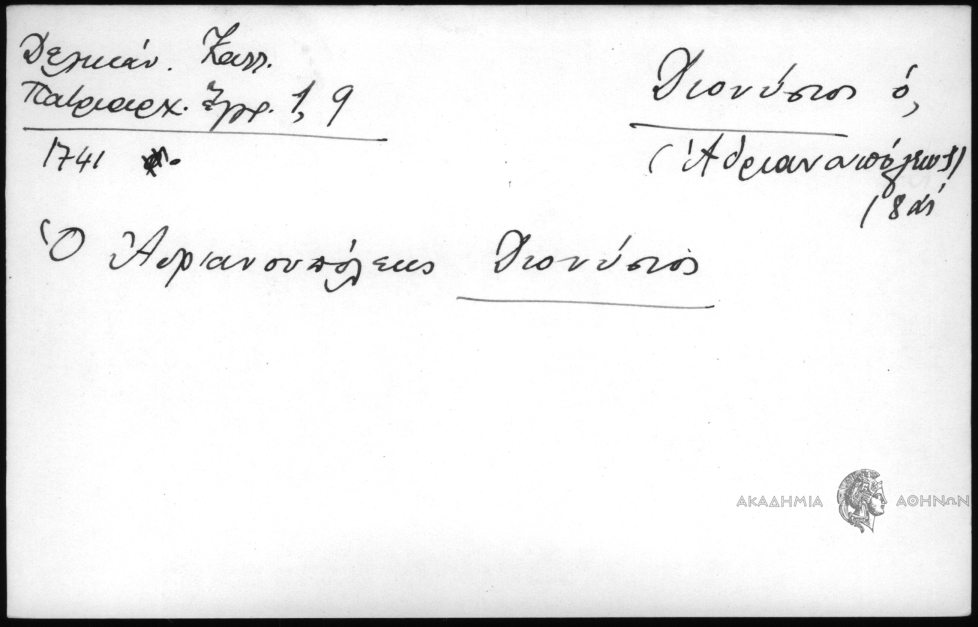 Δελικάν. Καλλ.
Πατριαρχ. Ἔγγρ. 1, 9
1741
Διονύσιος ὁ,
(Ἀδριανουπόλεως)
18 αἰ
Ὁ Ἀδριανουπόλεως Διονύσιος
ΑΚΑΔΗΜΙΑ ΑΘΗΝΩΝ